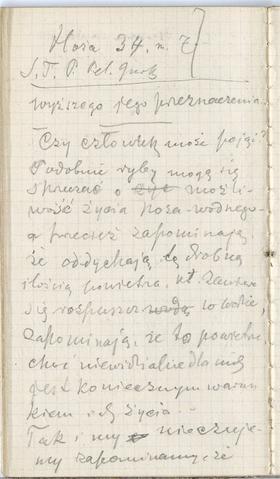 Hoża 34. m. 7
S. T. P.
wyższego jego przeznaczenia.
Czy człowiek może pojąć?
Podobnie ryby mogą się
sprzeczać o możli-
wość życia poza-wodnego
a przecież zapominają,
że oddychają tą drobną
ilością powietrza, kt. zawsze
się rozpuszcza w wodzie,
zapominają, że to powietrze,
choć niewidzialne dla nich
jest koniecznym warun
kiem ich życia..
Tak i my nieczuje-
my zapominamy, że